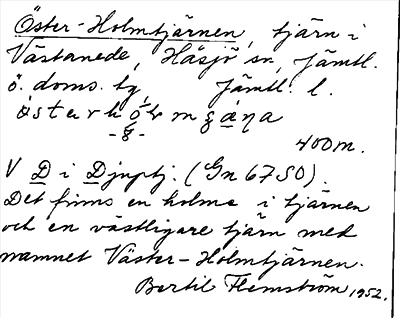 Öster-Holmtjärnen, tjärn i
Västanede, Håsjö sn, Jämtl.
ö. doms. tg Jämtl. l.
400m.
V D i Djuptj. (Gn 6750).
Det finns en holme i tjärnen
och en västligare tjärn med
namnet Väster-Holmtjärnen.
Bertil Flemström 1952.